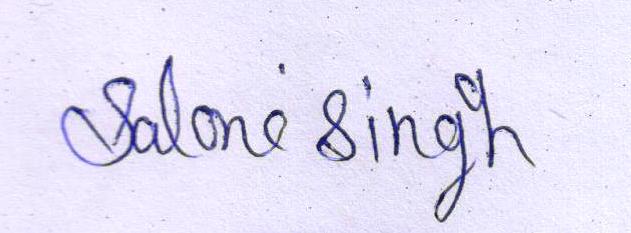 Saloni Singh